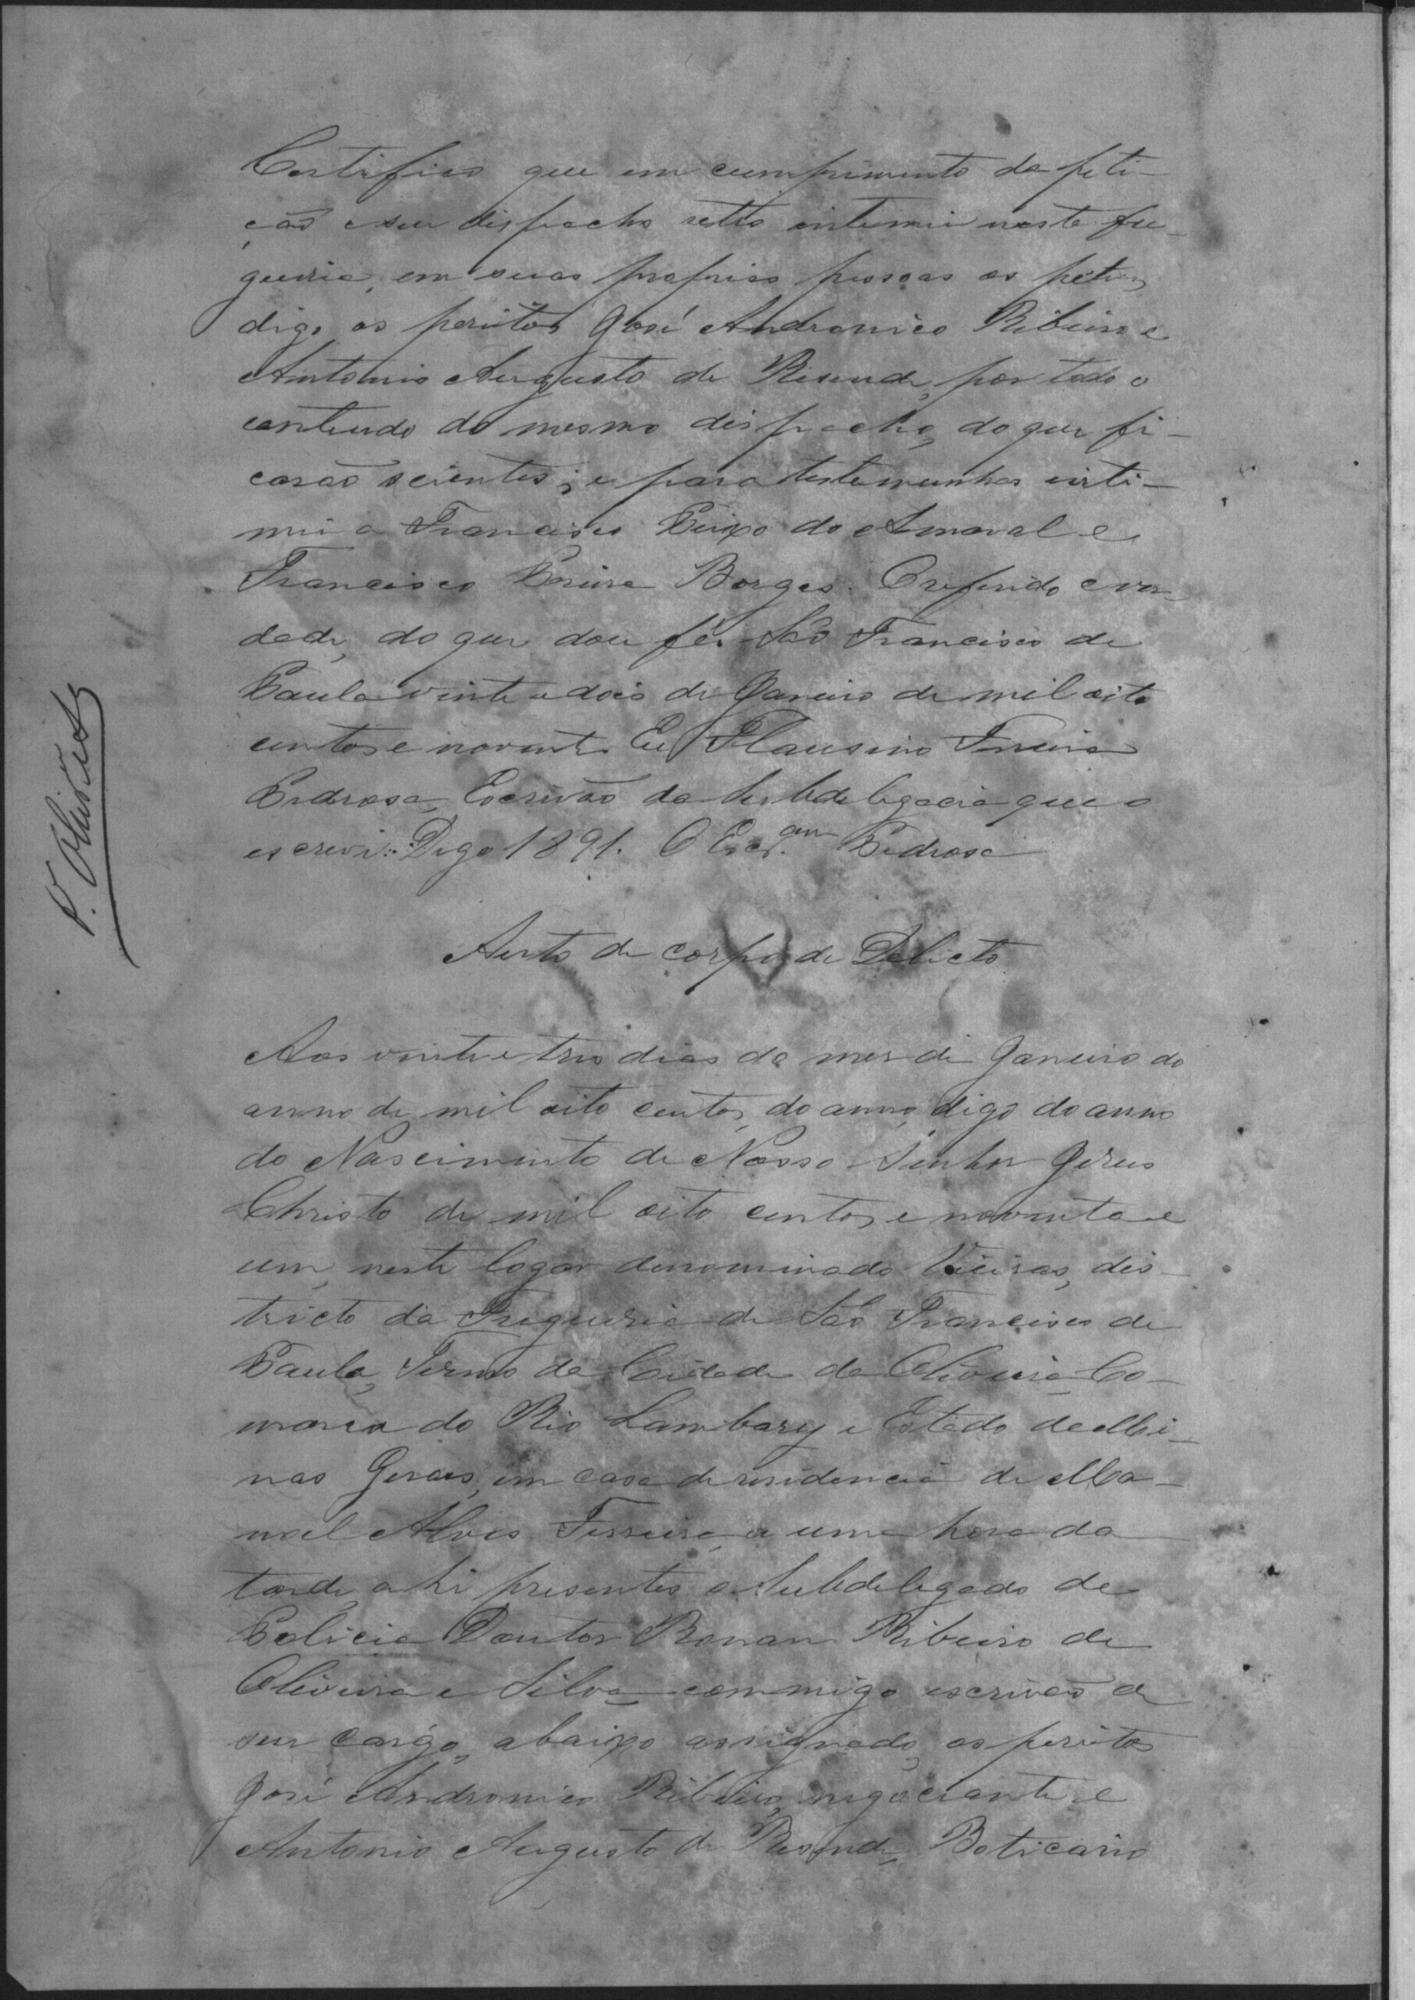 Certifico que em cumprimento da peti-
ção e seu despacho retro intimei nesta fre-
guezia, em suas proprias pessoas os petes,
digo os peritos José Andronico Ribeiro e
Antonio Augusto de Resende, por todo o
conteudo do mesmo despacho, do que fi-
carão scientes; e para testemunhas inti-
mei a Francisco do Amaral e
Francisco Borges. O referido e ver-
dade, do que dou fé. São Francisco de
Paula vinte e dois de Janeiro de mil oito
centos e noventa. Eu Flausino Ferreira
Pedrosa, Escrivão da Subdelegacia que o
escrevi. Digo 1891. O Escr.am Pedrosa
Auto de corpo de Delicto
Aos vinte e tres dias do mes de Janeiro do
anno de mil oito centos, do anno, digo do anno
do Nascimento de Nosso Senhor Jesus
Christo de mil oito centos e noventa e
um, neste logar denominado Vieiras, dis-
tricto da Freguezia de São Francisco de
Paula, Termo da Cidade de Oliveira Co-
marca do Rio Lambary e Estado de Mi-
nas Geraes, em casa de residencia de Ma-
noel Alves Ferreira, a uma hora da
tarde, ahi presentes o Subdelegado de
Policia Doutor Ronan Ribeiro de
Oliveira e Silva commigo escrivão de
seu cargo, abaixo assignado, os peritos
José Andronico Ribeiro, negociante e
Antonio Augusto de Resende, Boticario
P. Oliveira